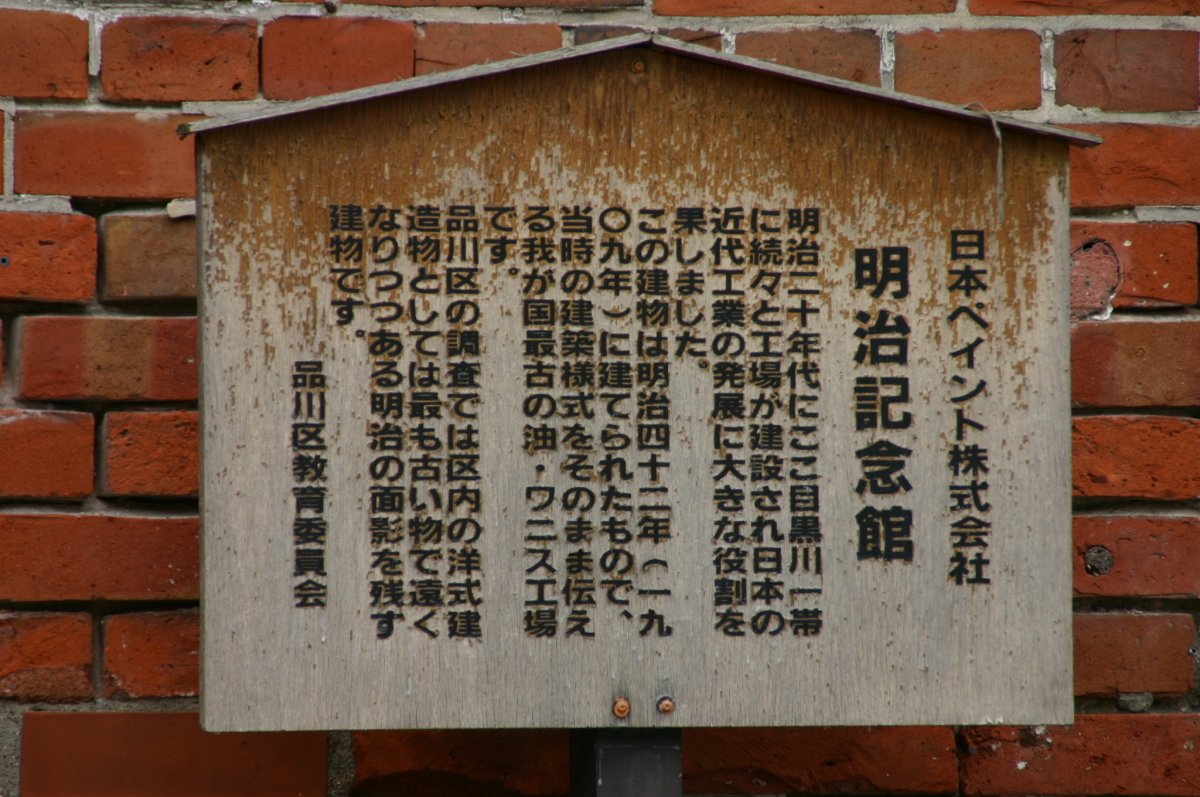 日本ペイント株式会社
明治記念館
明治二十年代にここ目黒川一帯
に続々と工場が建設され日本の
近代工業の発展に大きな役割を
果しました。
この建物は明治四十二年(一九
〇九年)に建てられたもので、
当時の建築様式をそのまま伝え
る我が国最古の油・ワニス工場
です。
品川区の調査では区内の洋式建
造物としては最も古い物で遠く
なりつつある明治の面影を残す
建物です。
品川区教育委員会